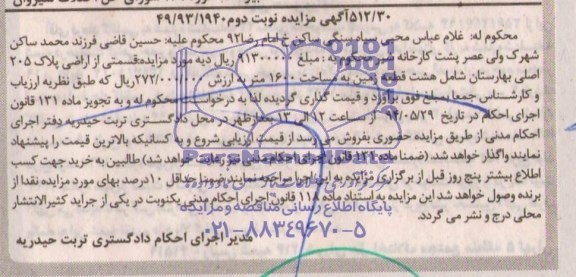 ۵۱۲/۳۰آگهی مزایده نوبت دوم۴۹/۹۳/۱۹۴۰
محکوم له: غلام عباس محبی سیاه سنگی ساکن خ امام رضا۹۲ محکوم علیه: حسین قاضی فرزند محمد ساکن
شهرک ولی عصر پشت کارخانه محکوم به: مبلغ ۹۱۳۰۰۰۰۰ ریال دیه مورد مزایده:قسمتی از اراضی پلاک ۲۰۵
اصلی بهارستان شامل هشت قطعه زمین به مساحت ۱۶۰۰ متر به ارزش ۲۷۲/۰۰۰/۰۰۰ریال که طبق نظریه ارزیاب
و کارشناس جمعا بمبلغ فوق برآورد و قیمت گذاری گردیده لذا به درخواست محکوم له و به تجویز ماده ۱۳۱ قانون
اجرای احکام در تاریخ ۹۳/۰۵/۲۹ از ساعت ۱۲ الی ۱۳ بعدازظهر در محل دادگستری تربت حیدریه دفتر اجرای
احکام مدنی از طریق مزایده حضوری بفروش می رسد از قیمت ارزیابی شروع و به کسانیکه بالاترین قیمت را پیشنهاد
نمایند واگذار خواهد شد. (ضمنا ماده قانون اجرای احکام مدنی خواهد شد) طالبین به خرید جهت کسب
اطلاع بیشتر پنج روز قبل از برگزاری مزایده به این اجرا مراجعه نمایند ضمنا حداقل ۱۰درصد بهای مورد مزایده نقدا از
برنده وصول خواهد شد این مزایده به استناد ماده ۱۱۸ قانون اجرای احکام مدنی یکنوبت در یکی از جراید کثیرالانتشار
محلی درج و نشر می گردد.
مدیر اجرای احکام دادگستری تربت حیدریه
پایگاه اطلاع رسانی مناقصه و مزایده
۰۲۱-۸۸۳۴۹۶۷۰-۵